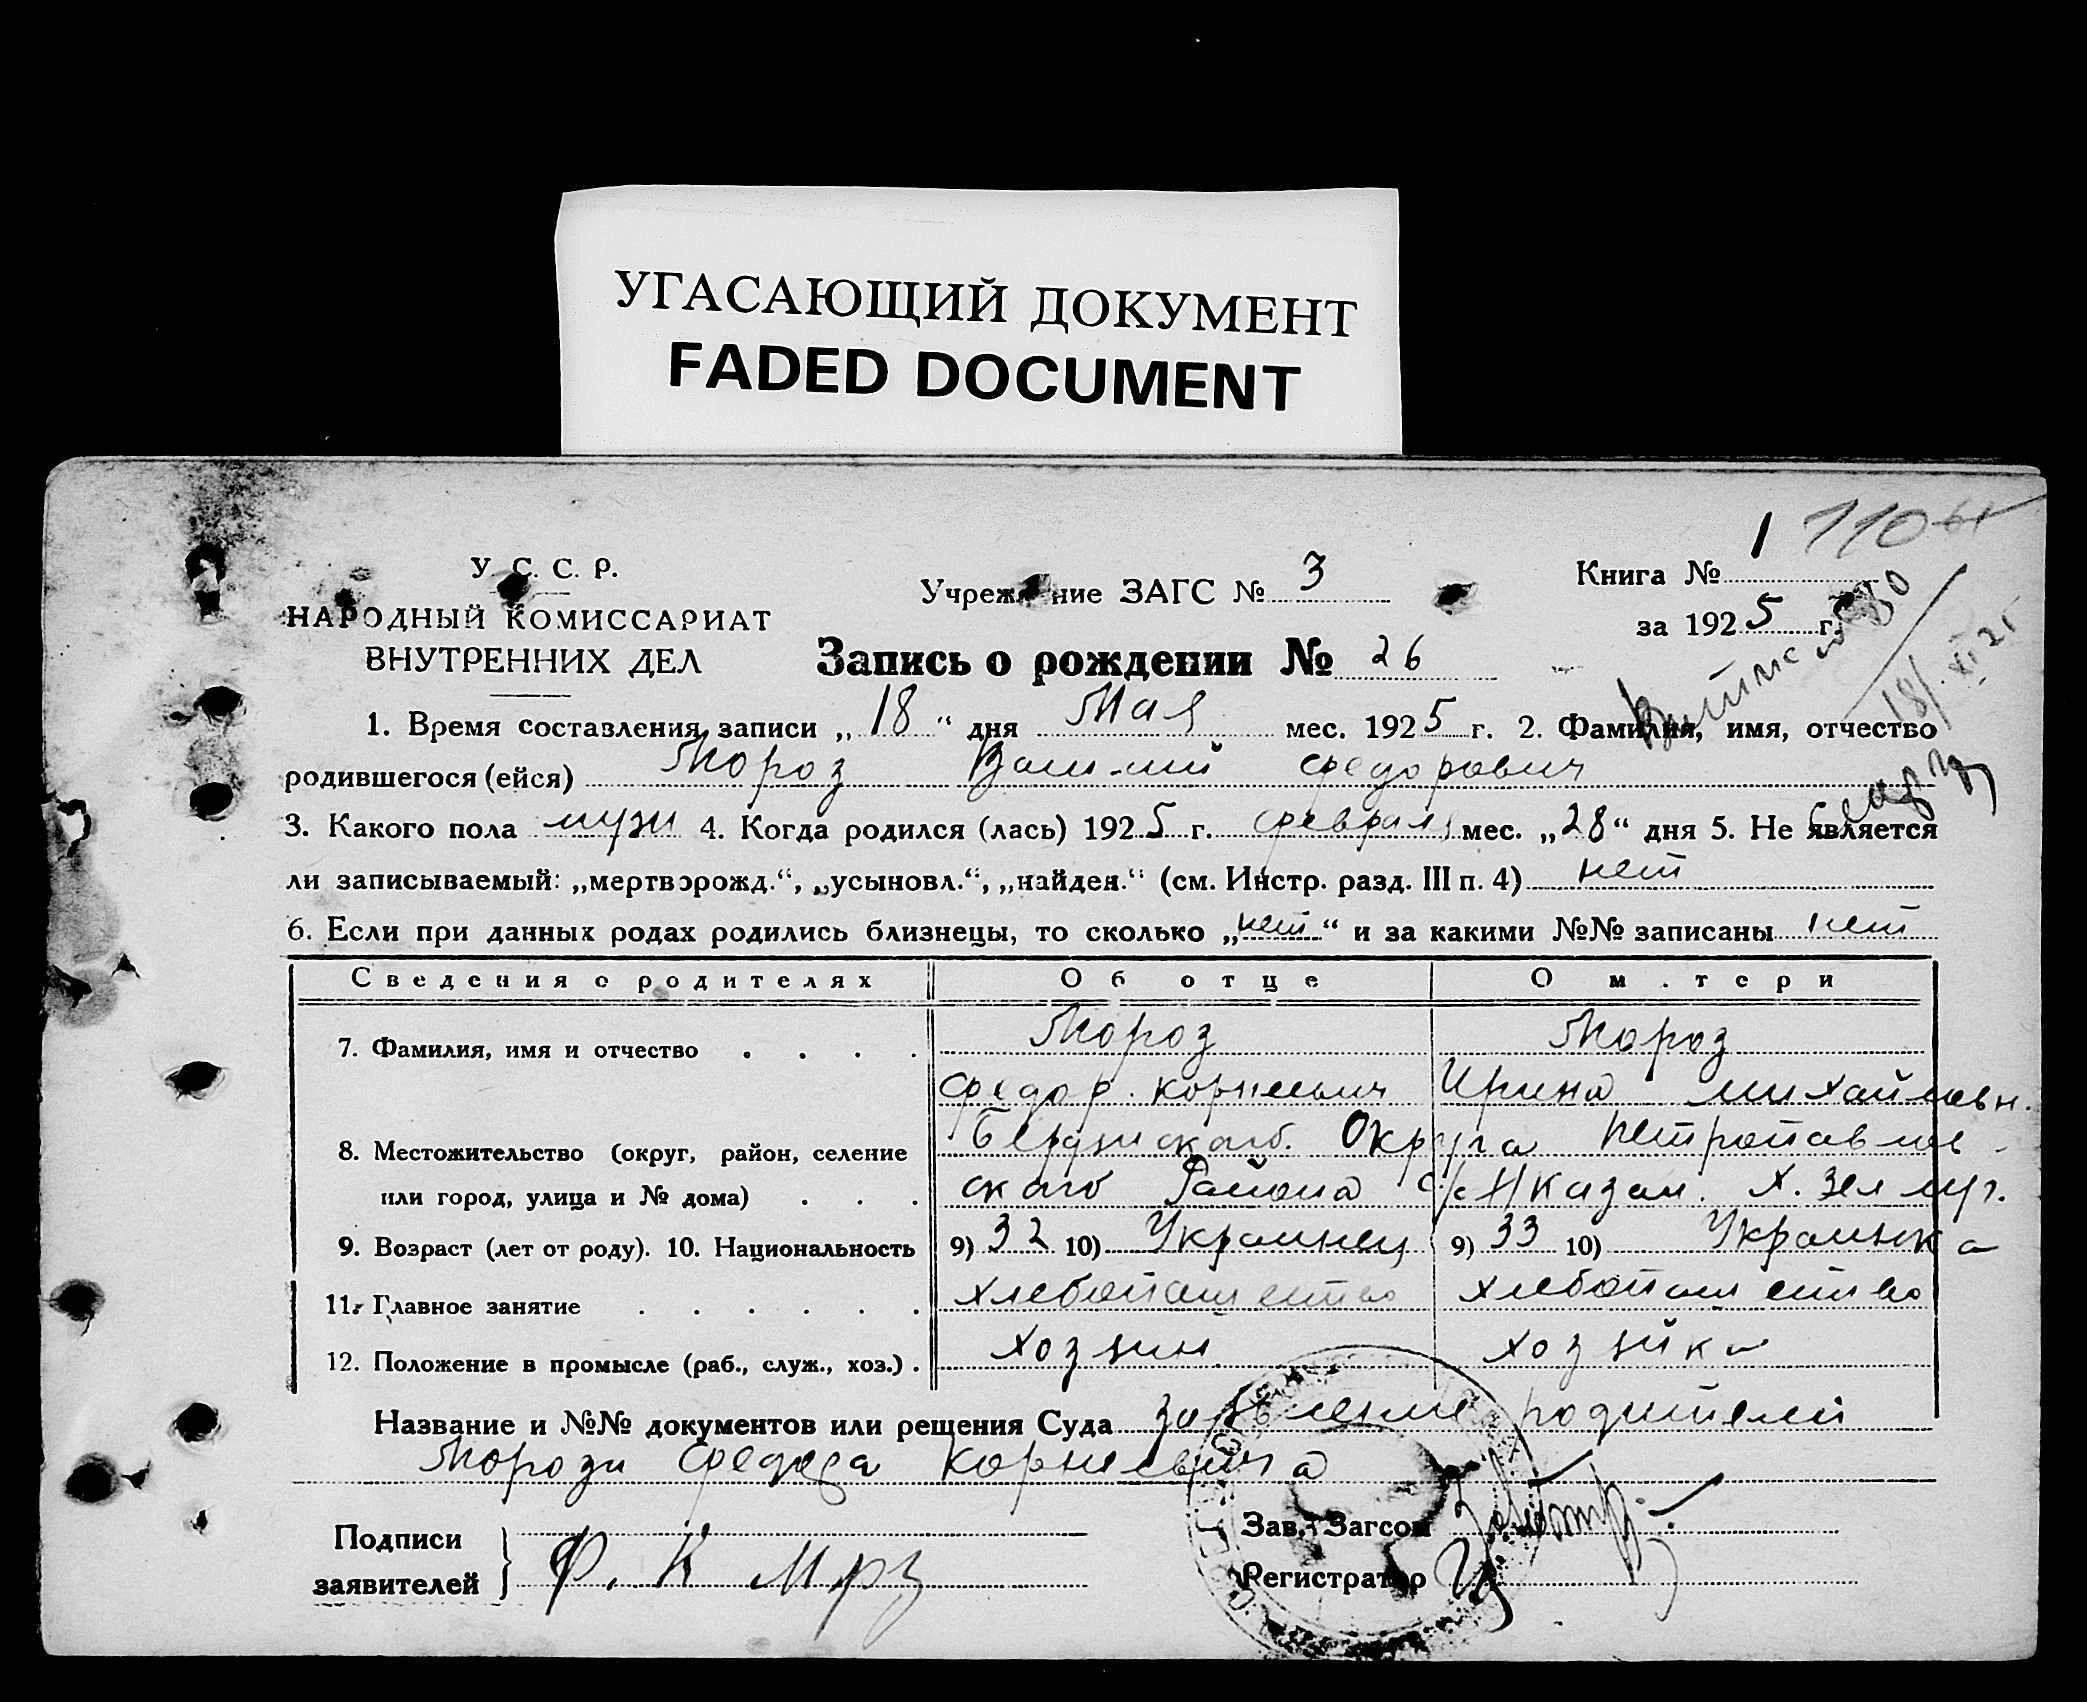 УГАСАЮЩИЙ ДОКУМЕНТ
FADED DOCUMENT
1 110
У. С. С. Р.
НАРОДНЫЙ КОМИССАРИАТ
ВНУТРЕННИХ ДЕЛ
Учреждение ЗАГС № 3
Книга № 1
за 1925 г.
Запись о рождении № 26
1. Время составления записи „18“ дня Мая мес. 1925 г. 2. Фамилия, имя, отчество
родившегося (ейся) Мороз Василий Федорович
3. Какого пола мужи 4. Когда родился (лась) 1925 г. февраля мес. „28“ дня 5. Не является
ли записываемый: „мертворожд.“, „усыновл.“, „найден.“ (см. Инстр. разд. III п. 4) нет
6. Если при данных родах родились близнецы, то сколько „нет“ и за какими №№ записаны нет
Сведения о родителях Об отце О м.тери
7. Фамилия, имя и отчество Мороз Мороз
Федор Корнеевич Ирина Михайловн.
8. Местожительство (округ, район, селение Бердянского Округа Петропавлов-
или город, улица и № дома) ского Района с/с Н/Казан. х. Зел луг.
9. Возраст (лет от роду). 10. Национальность 9) 32 10) Украинец 9) 33 10) Украинка
11. Главное занятие хлебопашество хлебопашество
12. Положение в промысле (раб., служ., хоз.) хозяин хозяйка
Название и №№ документов или решения Суда заявление родителей
Мороза Федора Корнеевича
Подписи
заявителей Ф. К Мрз
Зав. Загсом
Регистратор